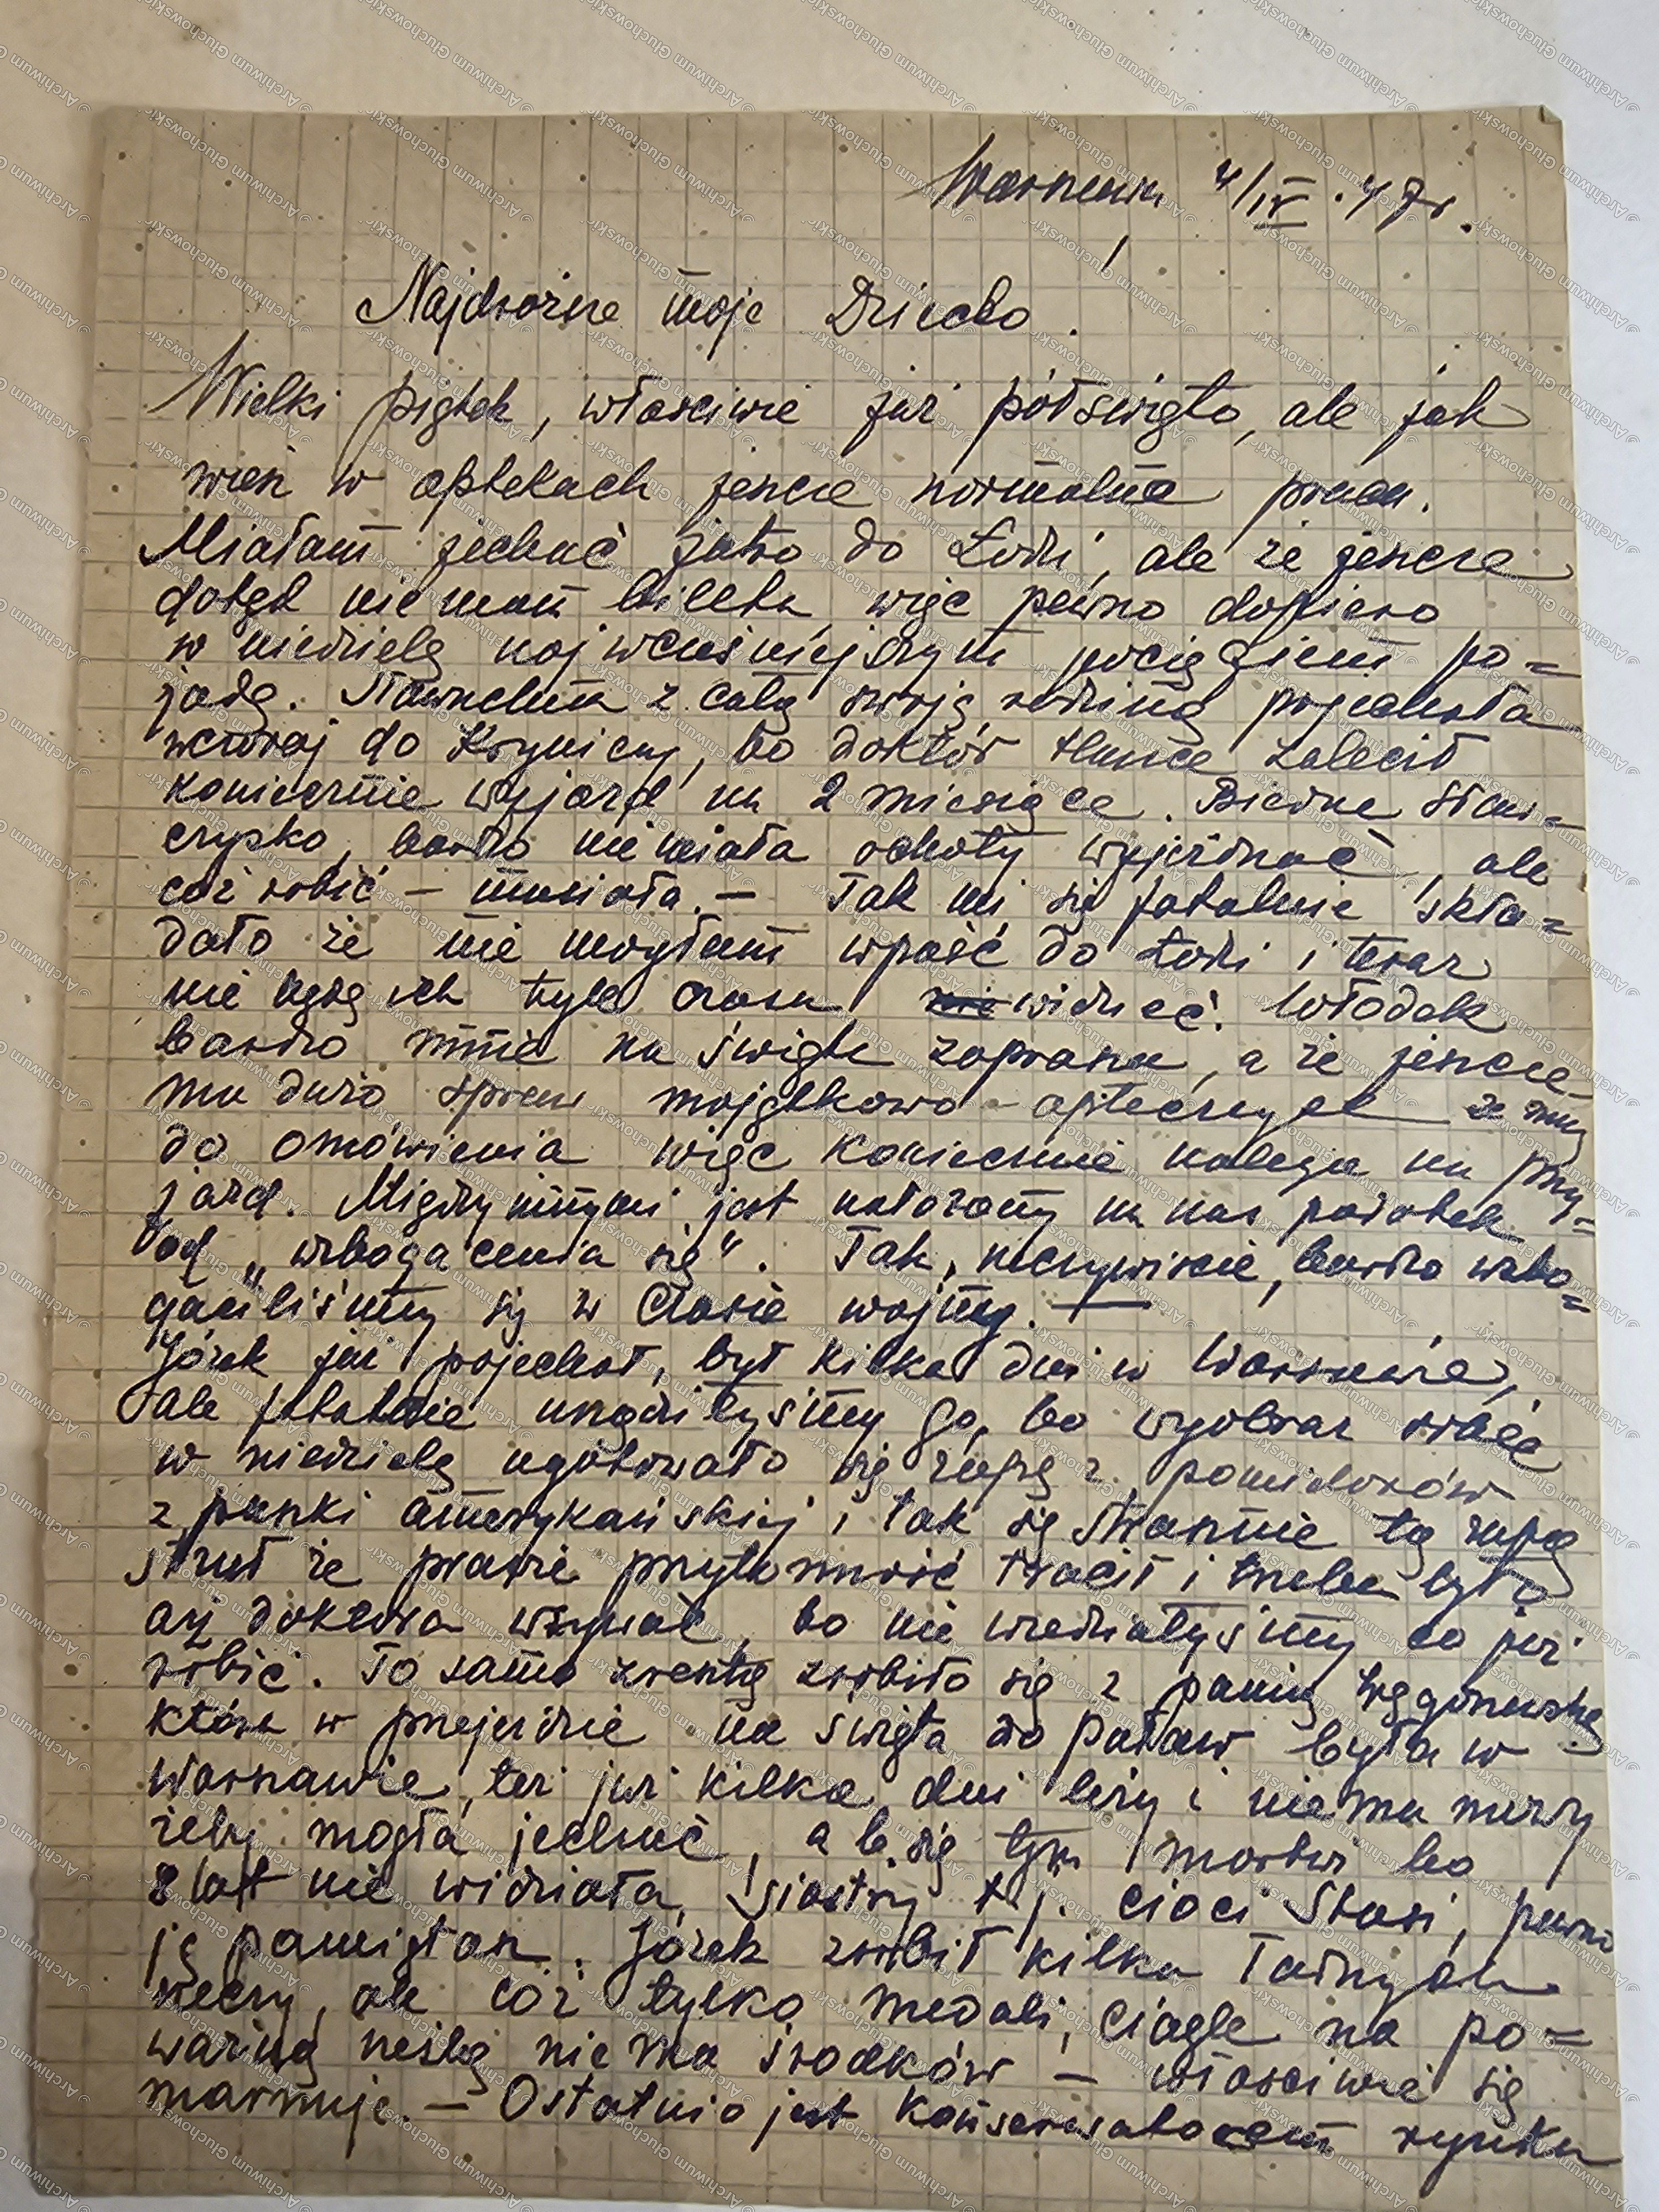 Warszawa 4/IV.47r.
Najdroższe moje Dziecko!
Wielki piątek, właściwie już półświęto, ale jak
wiesz w aptekach jeszcze normalna praca.
Miałam jechać jutro do Łodzi, ale że jeszcze
dotąd nie mam biletu, więc pewno dopiero
w niedzielę najwcześniejszym pociągiem po=
jadę. z całą swoją rodziną pojechała
wczoraj do Krynicy, bo doktór zalecił
koniecznie wyjazd na 2 miesiące. Biedne Stasi=
czysko, bardzo nie miała ochoty wyjeżdżać, ale
cóż robić – musiała. – Tak mi się fatalnie skła=
dało że nie mogłam wpaść do Łodzi i teraz
nie będę ich tyle czasu widzieć. Włodek
bardzo mnie na święta zaprasza, a że jeszcze
ma dużo spraw majątkowo-aptecznych ze mną
do omówienia więc koniecznie nalega na przy=
jazd. Między innymi jest nałożony na nas podatek
od „wzbogacenia się". Tak, rzeczywiście, bardzo wzbo=
gaciliśmy się w czasie wojny. –
Józek już pojechał, był kilka dni w Warszawie,
ale fatalnie urządziłyśmy Go, bo wyobraź sobie
w niedzielę ugotowało się zupę z pomidorów
z puszki amerykańskiej i tak się strasznie tą zupą
struł że prawie przytomność tracił i trzeba było
aż doktora wzywać, bo nie wiedziałyśmy co już
robić. To samo zresztą zrobiło się z panią
która w przejeździe na święta do Puław była w
Warszawie, też już kilka dni leży i nie ma mowy
żeby mogła jechać, a b. się tym martwi bo
8 lat nie widziała siostry t.j. cioci Stasi, pewno
ją pamiętasz. Józek zrobił kilka ładnych
rzeczy, ale cóż tylko medali, ciągle na po=
ważną rzeźbę nie ma środków – właściwie się
marnuje. – Ostatnio jest konserwatorem rynku